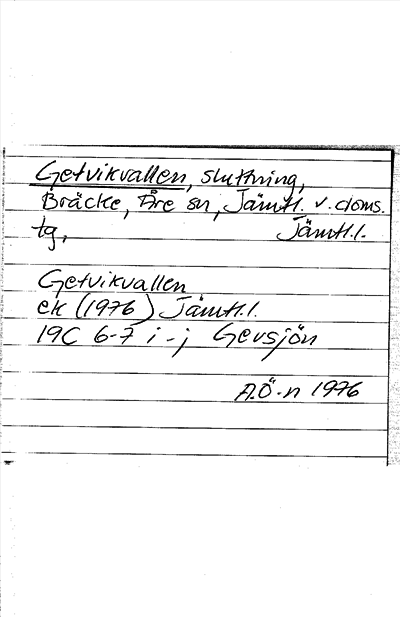 Getvikvallen, sluttning,
Bräcke, Åre sn, Jämtl. v. doms.
tg, Jämtl.l.
Getvikvallen
ek (1976) Jämtl.l.
19C 6-7 i-j Gevsjön
A.Ö-n 1976